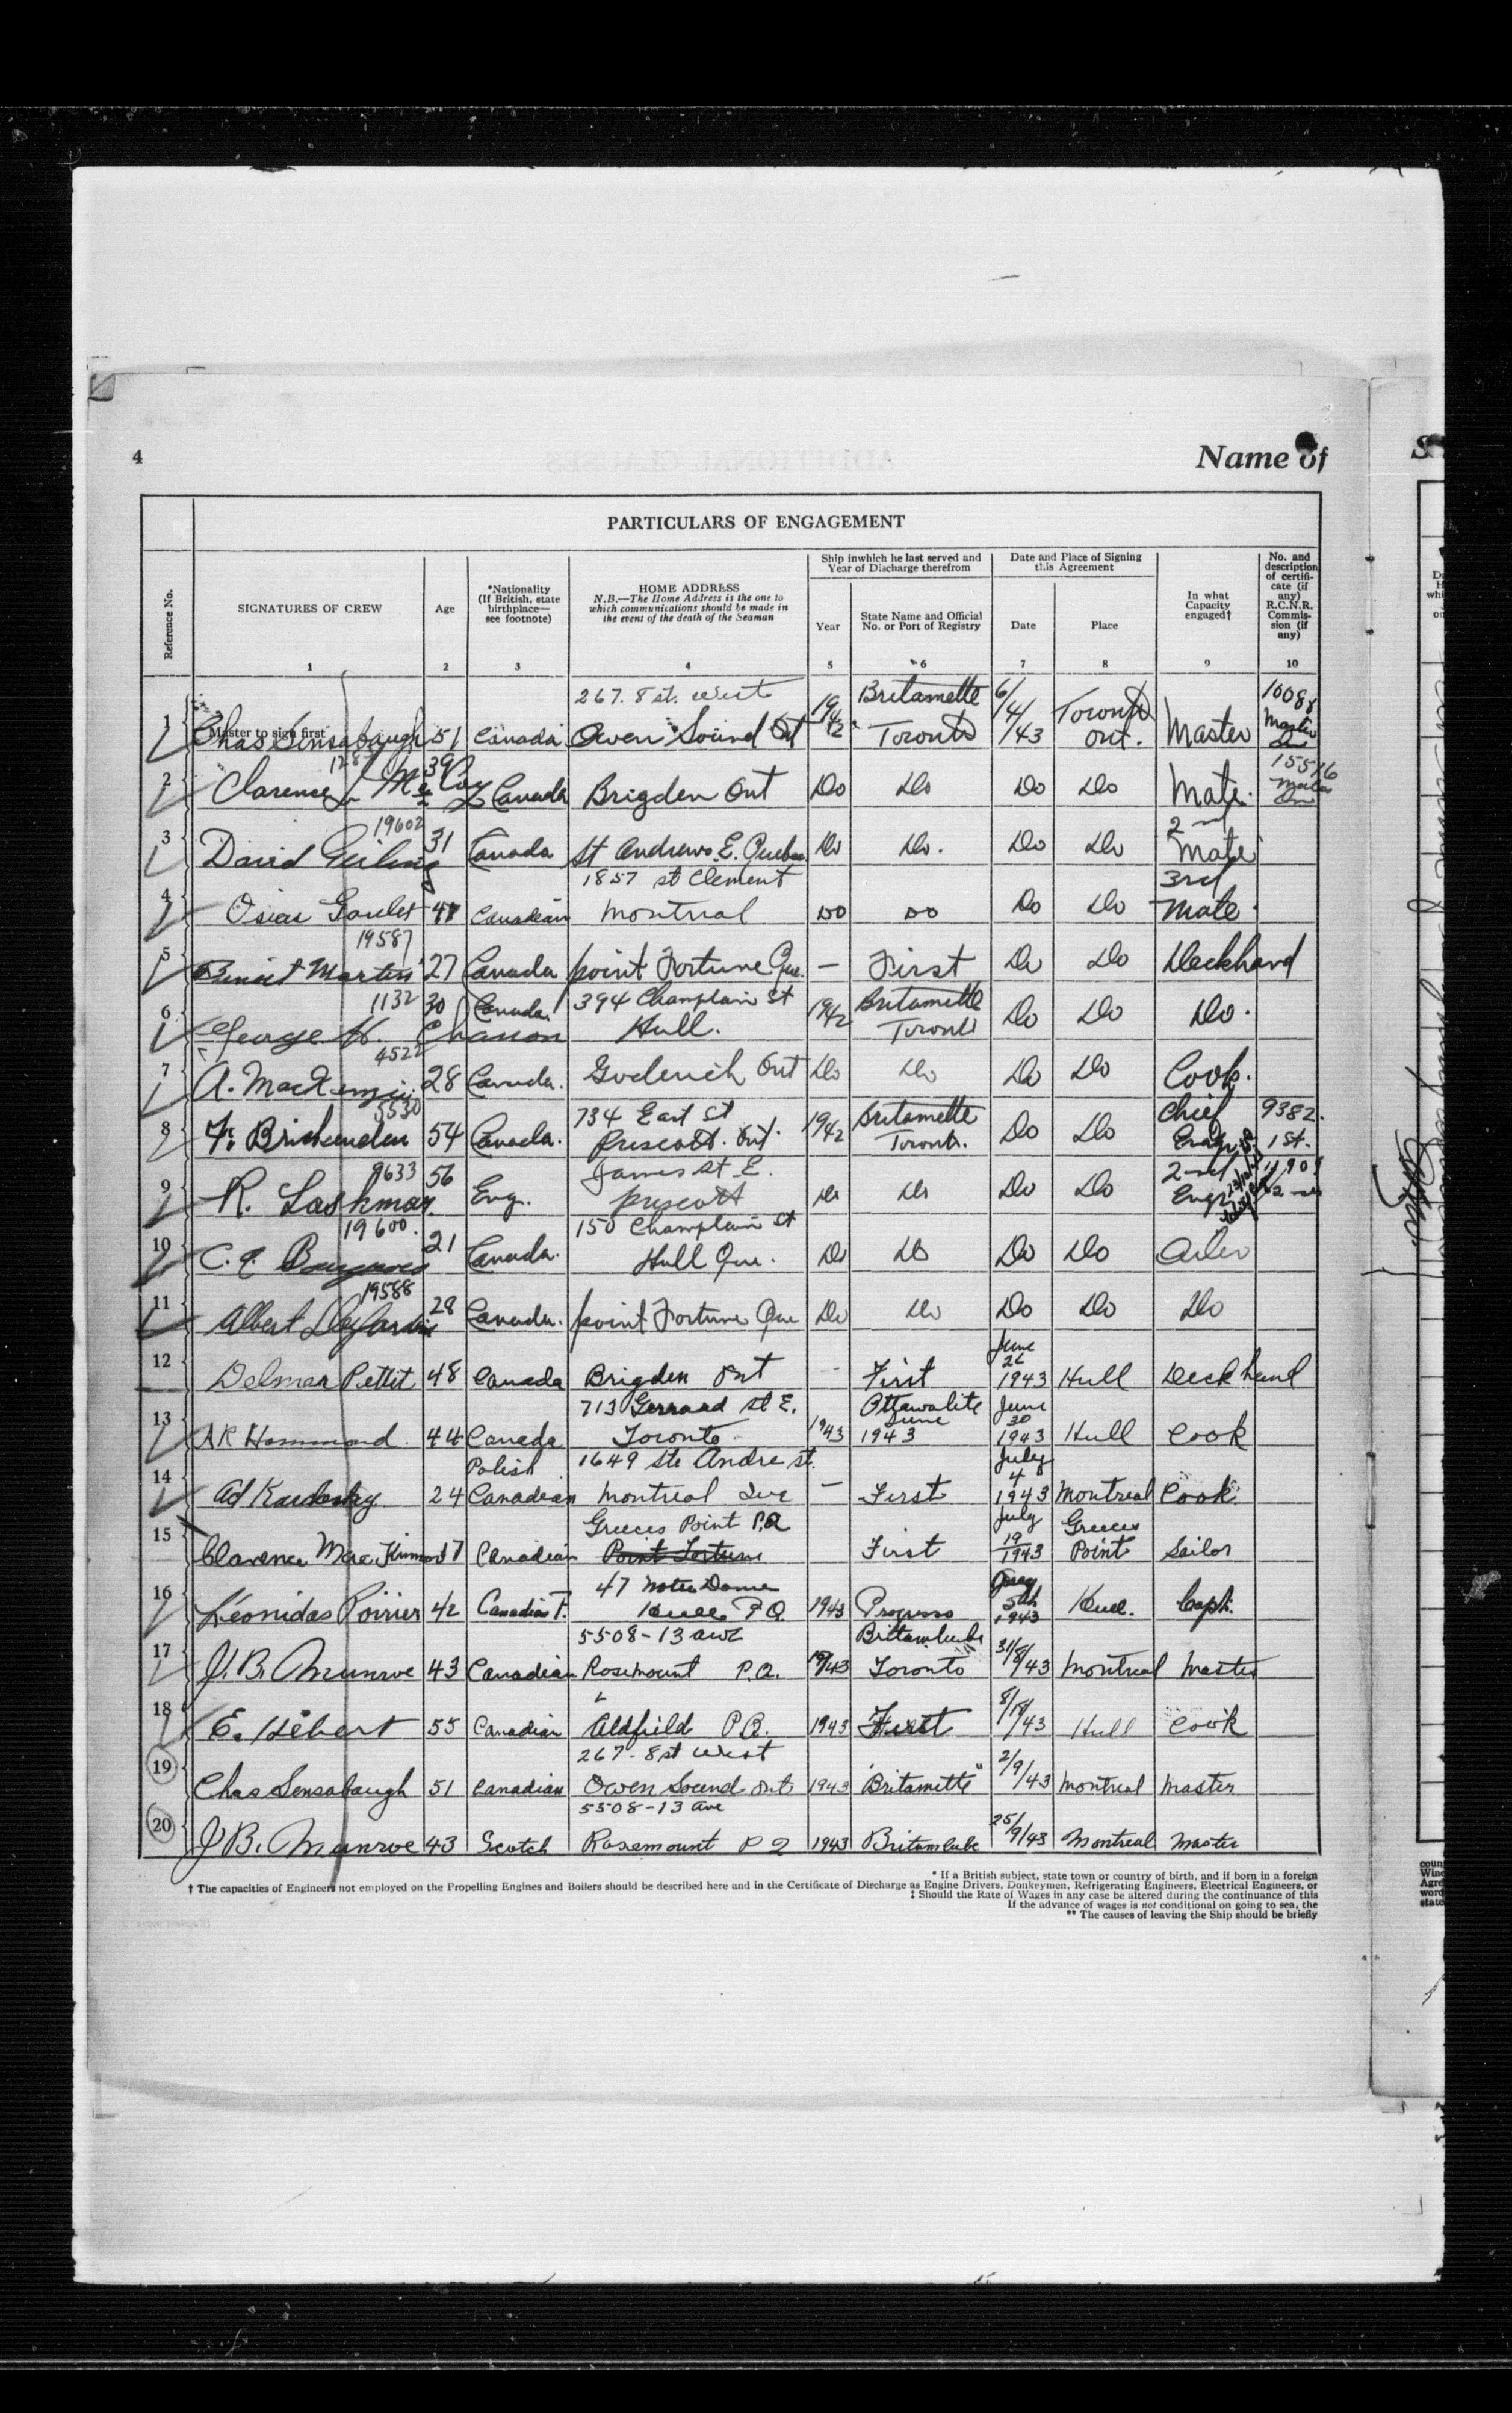 4
Name of
PARTICULARS OF ENGAGEMENT
Reference No.
SIGNATURES OF CREW
1
Age
2
*Nationality
(If British, state
birthplace—
see footnote)
3
HOME ADDRESS
N.B.—The Home Address is the one to
which communications should be made in
the event of the death of the Seaman
4
Ship in which he last served and
Year of Discharge therefrom
Year
5
State Name and Official
No. or Port of Registry
6
Date and Place of Signing
this Agreement
Date
7
Place
8
In what
Capacity
engaged†
9
No. and
description
of certifi-
cate (if
any)
R.C.N.R.
Commis-
sion (if
any)
10
267. 8 st. West Britamette 10088
1 Master to sign first
Chas Sensabaugh 51 Canada Owen Sound Ont 1942 Toronto 6/4/43 Toronto Ont. Master Master
2 Clarence Mc Coy 39 Canada Brigden Ont Do Do Do Do Mate. 15516
19602
3 David 31 Canada St Andrews E. Quebec Do Do. Do Do 2nd Mate
1857 St Clement
4 Osias Goulet Canadian Montreal Do Do Do Do 3rd Mate
19587
5 Benoit Martin 27 Canada point Fortune Que. — First Do Do Deckhand
1132 394 Champlain St Britamette
6 George H. Chasson 30 Canada Hull. 1942 Toronto Do Do Do.
4522
7 A. MacKenzie 28 Canada. Goderich Ont Do Do Do Do Cook.
5530 734 East St Britamette Chief 9382.
8 54 Canada. Prescott. Ont. 1942 Toronto. Do Do Engr. 1 St.
9633 James St E. 2nd
9 R. Lashmar 56 Eng. Prescott Do Do Do Do Engr
19600. 150 Champlain St
10 21 Canada. Hull Que. Do Do Do Do Oiler
19588
11 Albert Desjardin 28 Canada. point Fortune Que Do Do Do Do Do
12 Delmar Pettit 48 Canada Brigden Ont First June 26 1943 Hull Deck hand
713 Gerrard St E. Ottawalite
13 Hammond 44 Canada Toronto 1943 June 1943 June 30 1943 Hull Cook
Polish 1649 Ste Andre St.
14 24 Canadian Montreal Que — First July 4 1943 Montreal Cook
Greeces Point P.Q
15 Clarence Canadian Point Fortune First July 19 1943 Greeces Point Sailor
47 Notre Dame
16 Léonidas Poirier 42 Canadian F. Hull P.Q. 1943 Progresso 5th 1943 Hull. Capt.
5508-13 ave Britamlube
17 J. B. Munroe 43 Canadian Rosemount P.Q. 1943 Toronto 31/8/43 Montreal Master
18 E. Hébert 55 Canadian Aldfield P.Q. 1943 First Hull Cook
267-8 st West
19 Chas Sensabaugh 51 Canadian Owen Sound Ont 1943 "Britamette" 2/9/43 Montreal Master
5508-13 Ave
20 J B. Munroe 43 Scotch Rosemount P Q 1943 Britamlube 25/9/43 Montreal Master
* If a British subject, state town or country of birth, and if born in a foreign
† The capacities of Engineers not employed on the Propelling Engines and Boilers should be described here and in the Certificate of Discharge as Engine Drivers, Donkeymen, Refrigerating Engineers, Electrical Engineers, or
‡ Should the Rate of Wages in any case be altered during the continuance of this
If the advance of wages is not conditional on going to sea, the
** The causes of leaving the Ship should be briefly